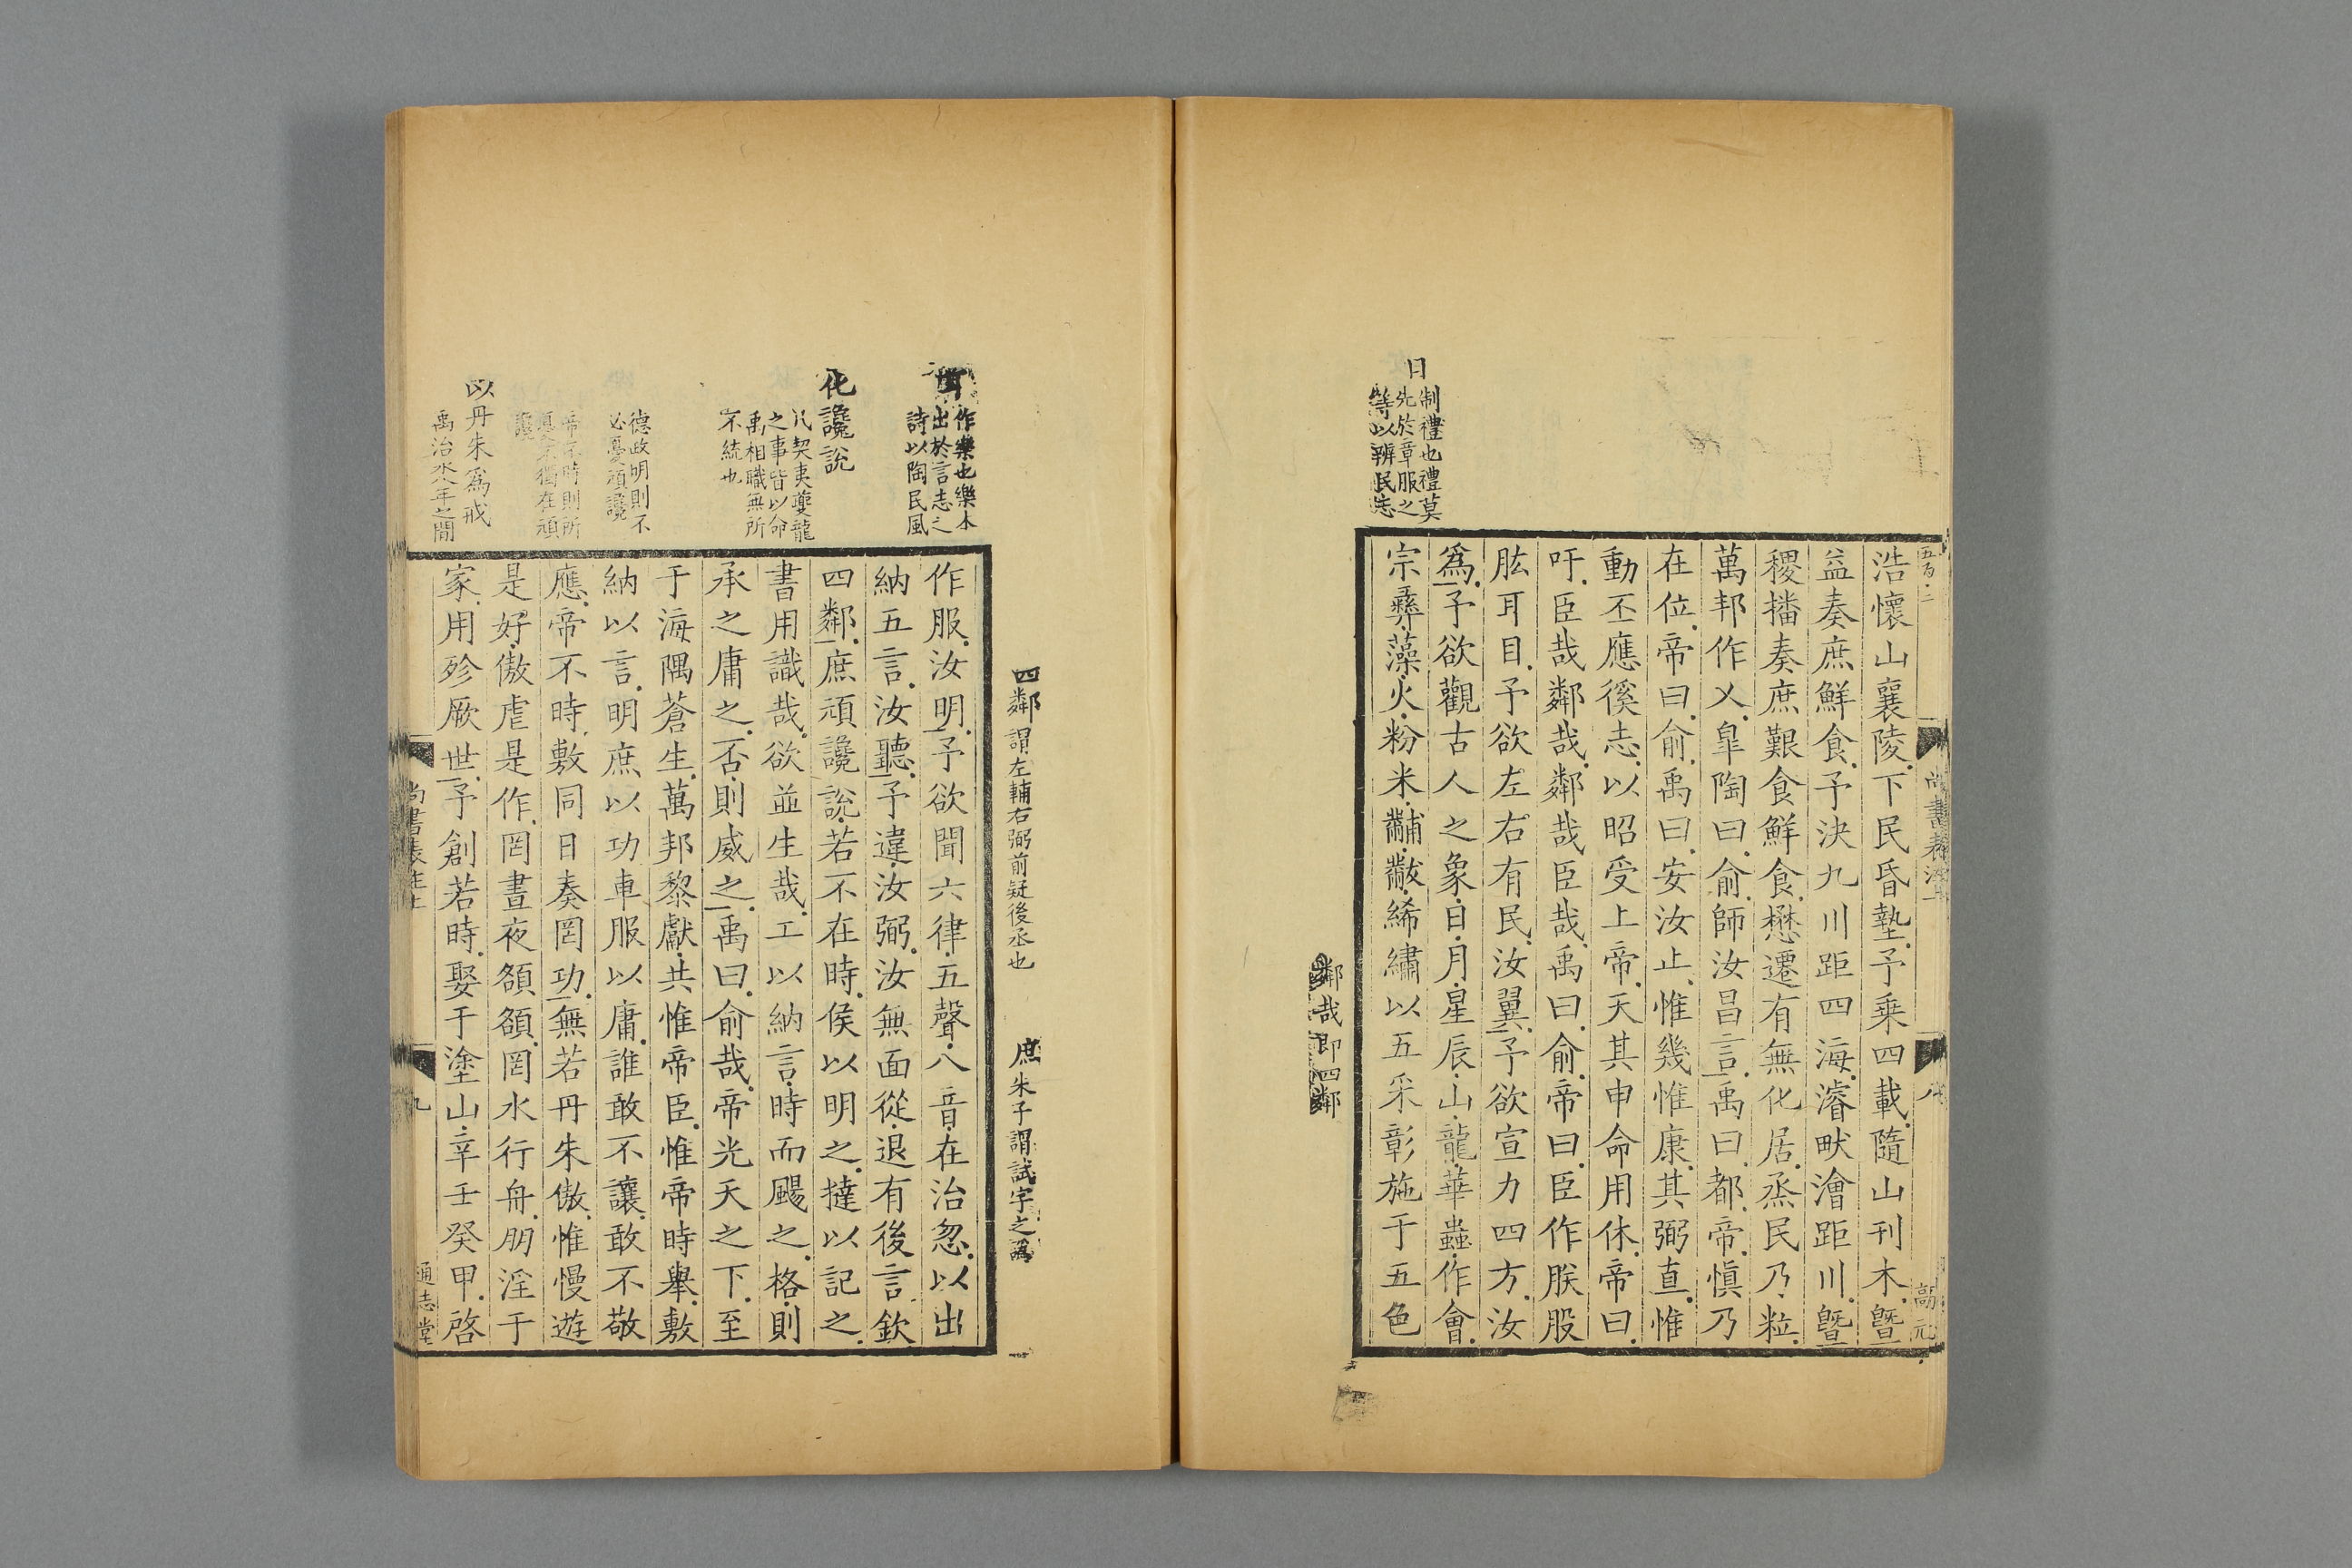 尚書表注上
八
高元
浩懷山襄陵下民昏墊予乗四載隨山刊木曁
益奏庶鮮食予決九川距四海濬畎澮距川曁
稷播奏庶艱食鮮食懋遷有無化居烝民乃粒
萬邦作乂臯陶曰俞師汝昌言禹曰都帝愼乃
在位帝曰俞禹曰安汝止惟幾惟康其弼直惟
動丕應徯志以昭受上帝天其申命用休帝曰
吁臣哉鄰哉鄰哉臣哉禹曰俞帝曰臣作朕股
肱耳目予欲左右有民汝翼予欲宣力四方汝
爲予欲觀古人之象日月星辰山龍華蟲作會
宗彝藻火粉米黼黻絺繡以五采彰施于五色
日
制禮也禮莫
先於章服之
等以辨民志
鄰哉即四鄰
四鄰謂左輔右弼前疑後丞也
庶朱子謂試字之譌
作樂也樂本
出於言志之
詩以陶民風
化讒說
之事皆以命
禹相職無所
不統也
德政明則不
必憂頑讒
以丹朱爲戒
禹治水八年之間
作服汝明予欲聞六律五聲八音在治忽以出
納五言汝聽予違汝弼汝無面從退有後言欽
四鄰庶頑讒說若不在時侯以明之撻以記之
書用識哉欲並生哉工以納言時而颺之格則
承之庸之否則威之禹曰俞哉帝光天之下至
于海隅蒼生萬邦黎獻共惟帝臣惟帝時舉敷
納以言明庶以功車服以庸誰敢不讓敢不敬
應帝不時敷同日奏罔功無若丹朱傲惟慢遊
是好傲虐是作罔晝夜頟頟罔水行舟朋淫于
家用殄厥世予創若時娶于塗山辛壬癸甲啓
尚書表注上
九
通志堂